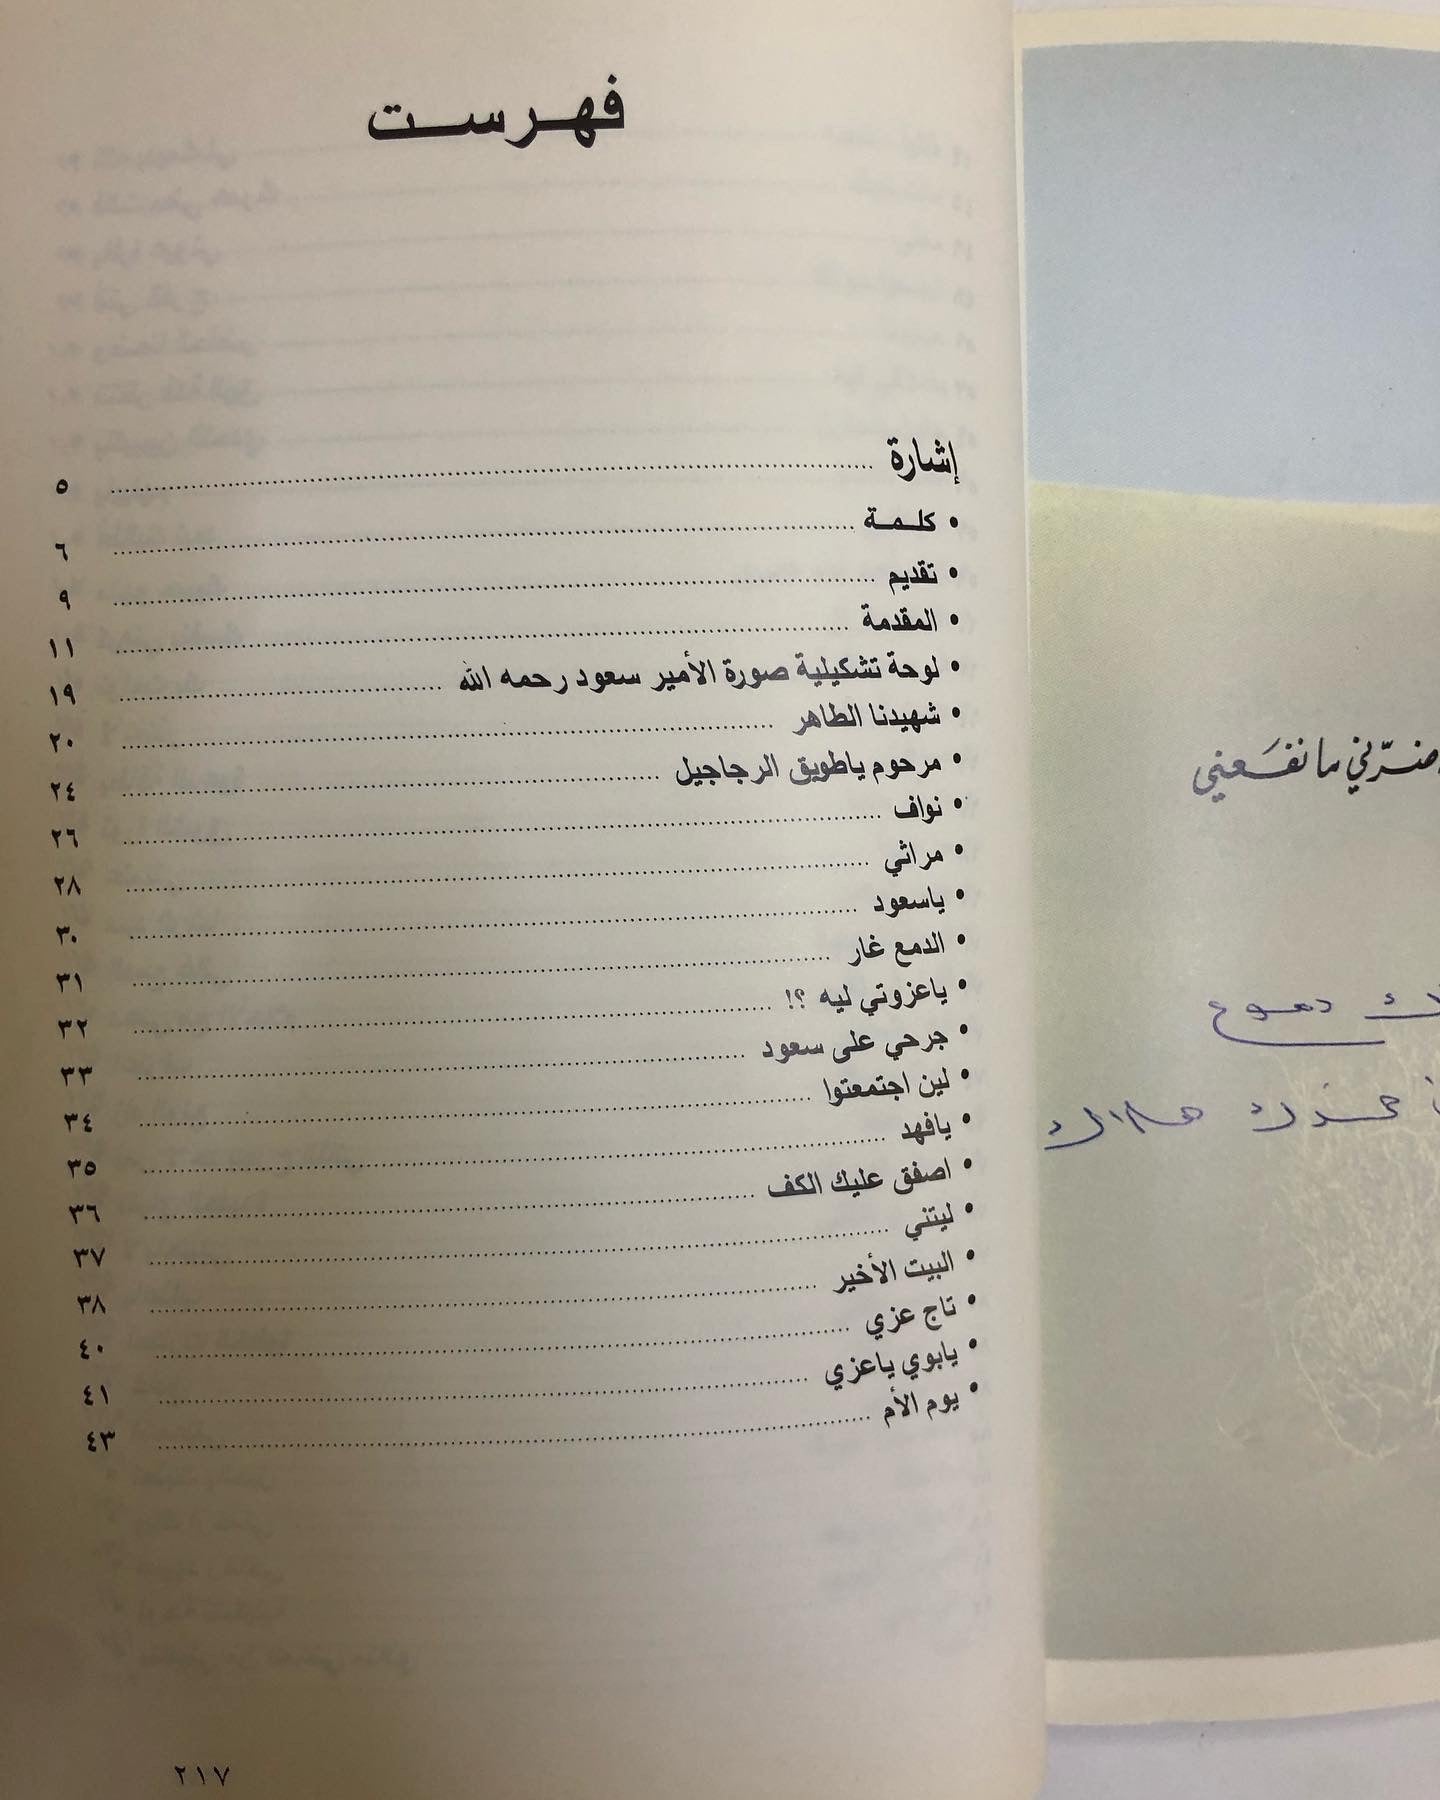 فهرست
إشارة ........ ٥
• كلمة ........ ٦
• تقديم ........ ٩
• المقدمة ........ ١١
• لوحة تشكيلية صورة الأمير سعود رحمه الله ........ ١٩
• شهيدنا الطاهر ........ ٢٠
• مرحوم ياطويق الرجاجيل ........ ٢٤
• نواف ........ ٢٦
• مراثي ........ ٢٨
• ياسعود ........ ٣٠
• الدمع غار ........ ٣١
• ياعزوتي ليه ؟! ........ ٣٢
• جرحي على سعود ........ ٣٣
• لين اجتمعتوا ........ ٣٤
• يافهد ........ ٣٥
• اصفق عليك الكف ........ ٣٦
• ليتني ........ ٣٧
• البيت الأخير ........ ٣٨
• تاج عزي ........ ٤٠
• يابوي ياعزي ........ ٤١
• يوم الأم ........ ٤٣
٢١٧
ضرّني ما نفَعني
دموع